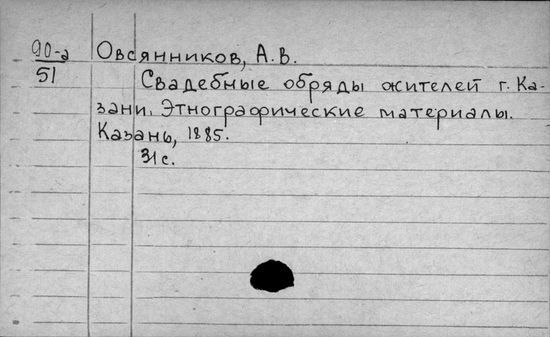 90-а Овсянников, А.В.
51
Свадебные обряды жителей г. Ка-
зани. Этнографические материалы.
Казань, 1885.
31 с.